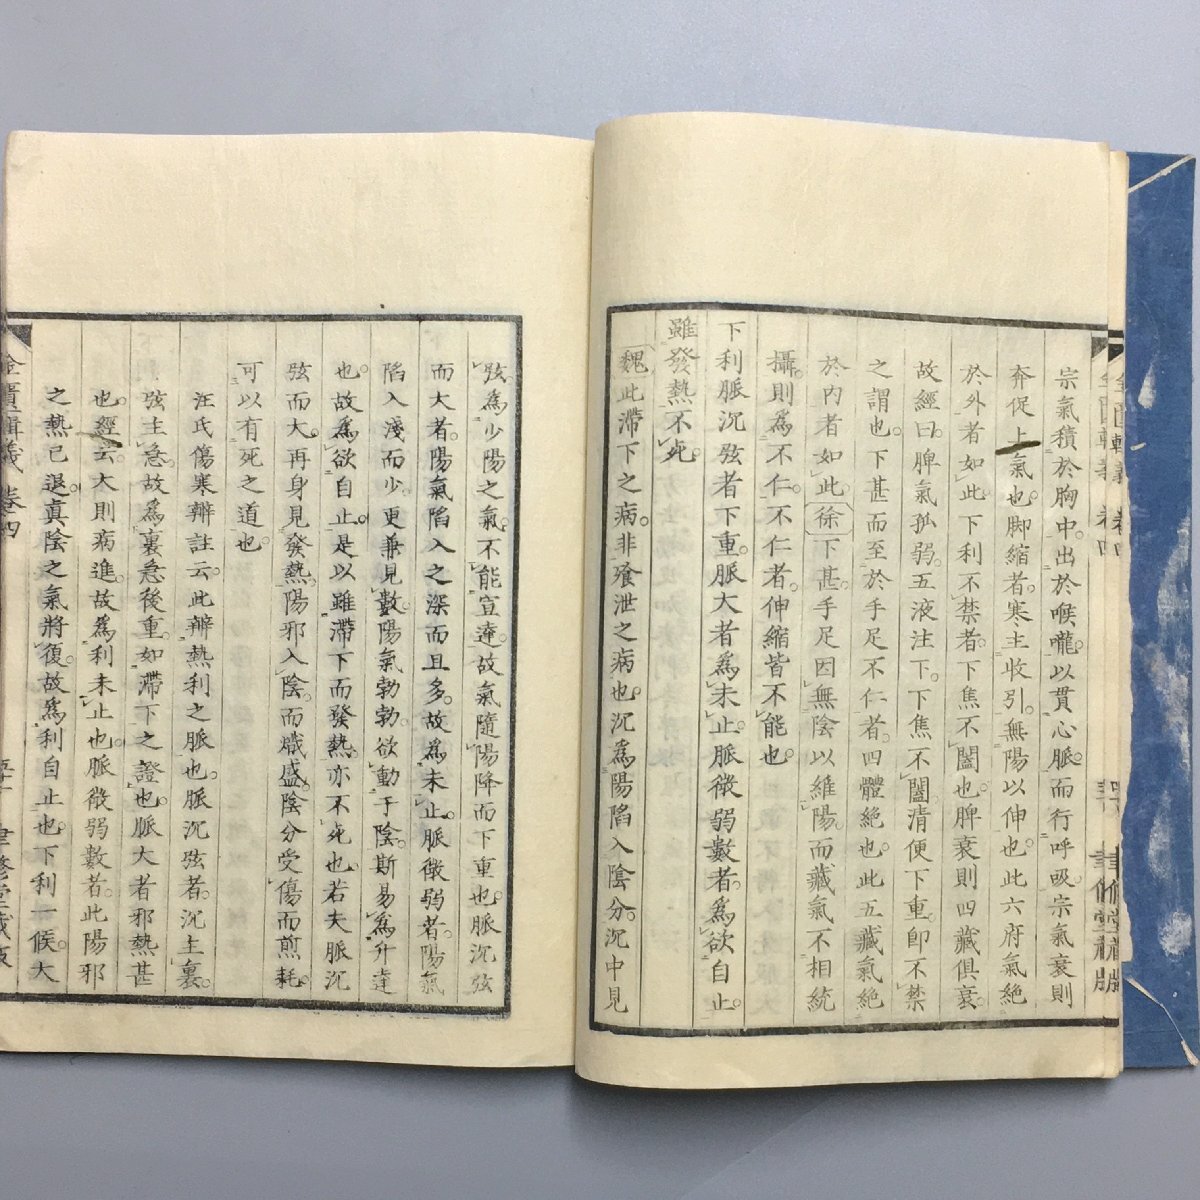 宗氣積於胸中。出於喉嚨。以貫心脈。而行呼吸。宗氣衰則
奔促上氣也。脚縮者。寒主收引。無陽以伸也。此六府氣絶
於外者如此。下利不禁者。下焦不闔也。脾衰則四藏俱衰。
故經曰。脾氣孤弱。五液注下。下焦不闔。清便下重。即不禁
之謂也。下甚而至於手足不仁者。四體絶也。此五藏氣絶
於内者如此。徐下甚。手足因無陰以維陽。而藏氣不相統
攝。則爲不仁。不仁者。伸縮皆不能也。
下利脈沉弦者下重。脈大者爲未止。脈微弱數者。爲欲自止。
雖發熱不死。
魏此滯下之病。非飱泄之病也。沉爲陽陷入陰分。沉中見
弦。爲少陽之氣。不能宣達。故氣隨陽降而下重也。脈沉弦
而大者。陽氣陷入之深而且多。故爲未止。脈微弱者。陽氣
陷入淺而少。更兼見數。陽氣勃勃。欲動于陰。斯易爲升達
也。故爲欲自止。是以雖滯下而發熱。亦不死也。若夫脈沉
弦而大。再身見發熱。陽邪入陰。而熾盛。陰分受傷而煎耗。
可以有死之道也。
汪氏傷寒辯註云。此辯熱利之脈也。脈沉弦者。沉主裏。
弦主急。故爲裏急後重。如滯下之證也。脈大者。邪熱甚
也。經云。大則病進。故爲利未止也。脈微弱數者。此陽邪
之熱已退。眞陰之氣將復。故爲利自止也。下利一候。大
金匱輯義 卷四 聿修堂藏版